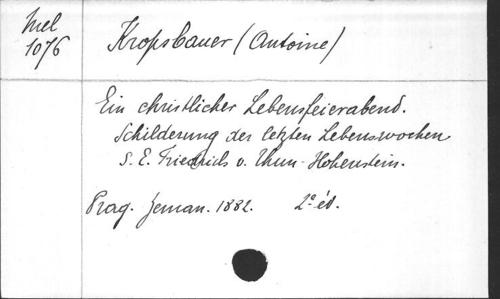 Mel
1076
Kropsbauer (Antoine)
Ein christlicher Lebensfeierabend.
Schilderung der letzten Lebenswochen
S. E. Friedrichs v. Thun-Hohenstein.
Prag. Jeman. 1882. 2e éd.